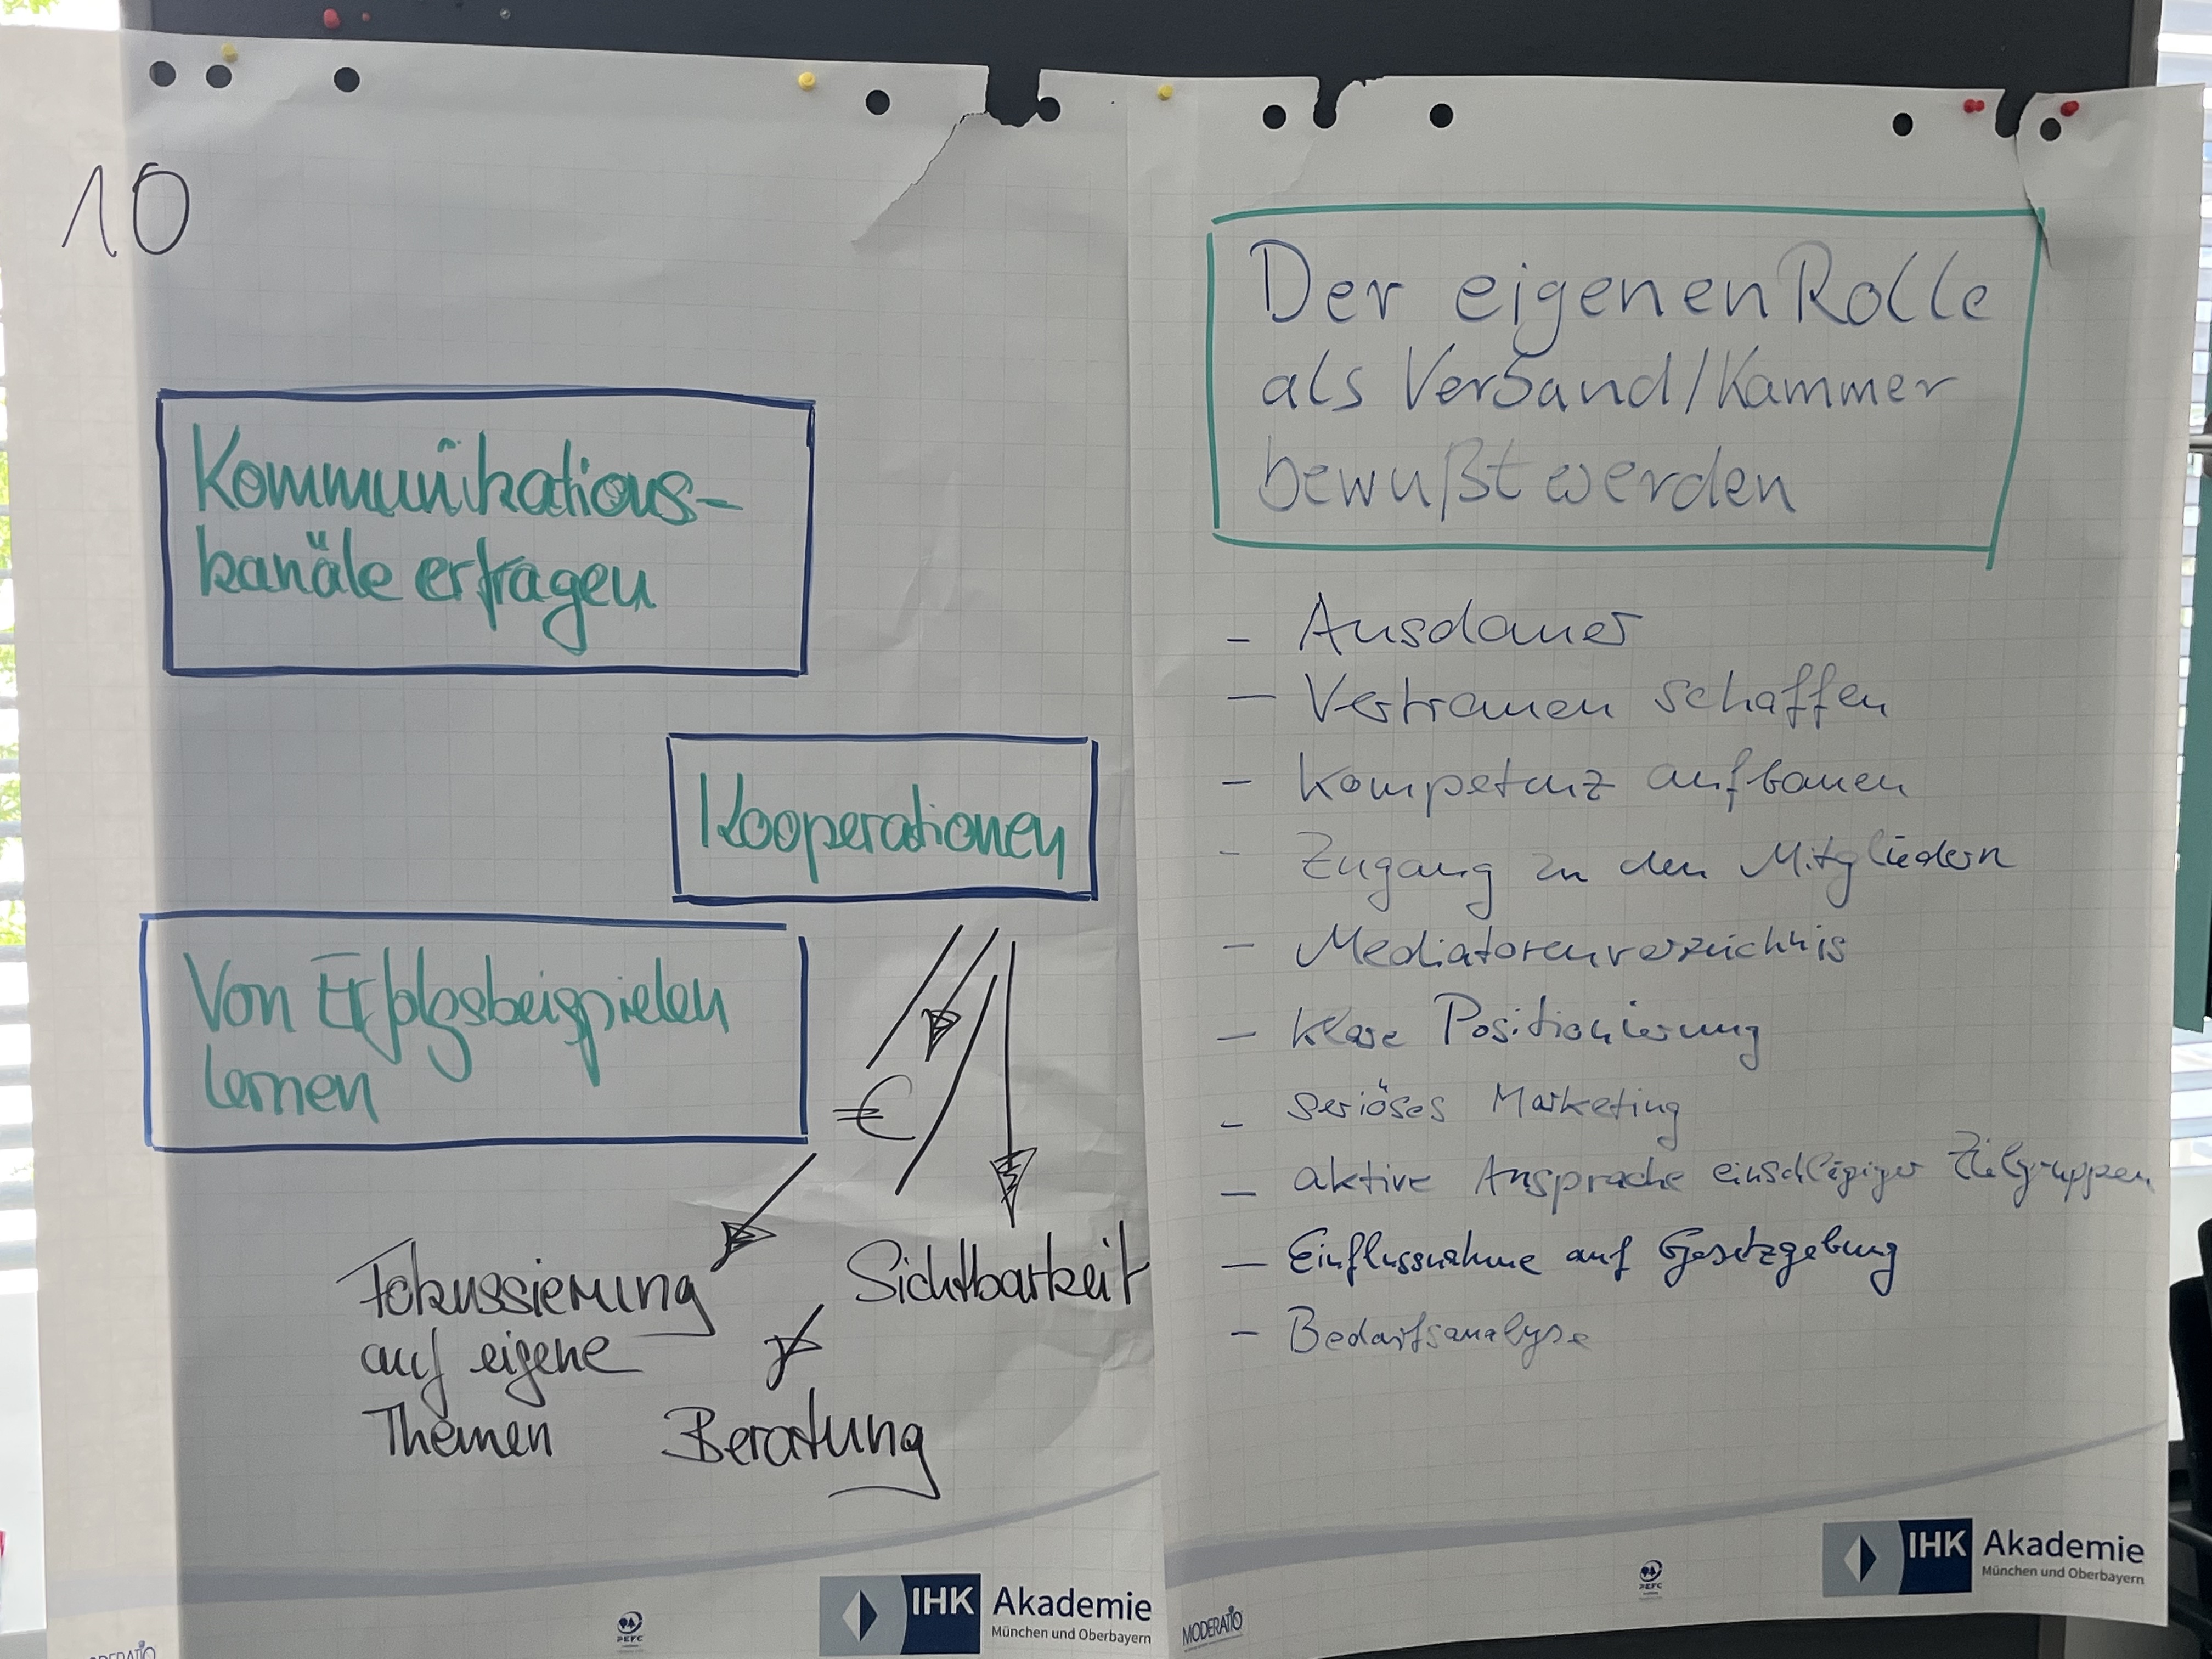 10
Kommunikations-
kanäle erfragen
Kooperationen
Von Erfolgsbeispielen
lernen
€
Fokussierung
auf eigene
Themen
Sichtbarkeit
Beratung
IHK Akademie
München und Oberbayern
PEFC
Der eigenen Rolle
als Verband/Kammer
bewußt werden
- Ausdauer
- Vertrauen schaffen
- Kompetenz aufbauen
- Zugang zu den Mitgliedern
- Mediatorenverzeichnis
- klare Positionierung
- seriöses Marketing
- aktive Ansprache einschlägiger Zielgruppen
- Einflussnahme auf Gesetzgebung
- Bedarfsanalyse
MODERATIO
PEFC
IHK Akademie
München und Oberbayern